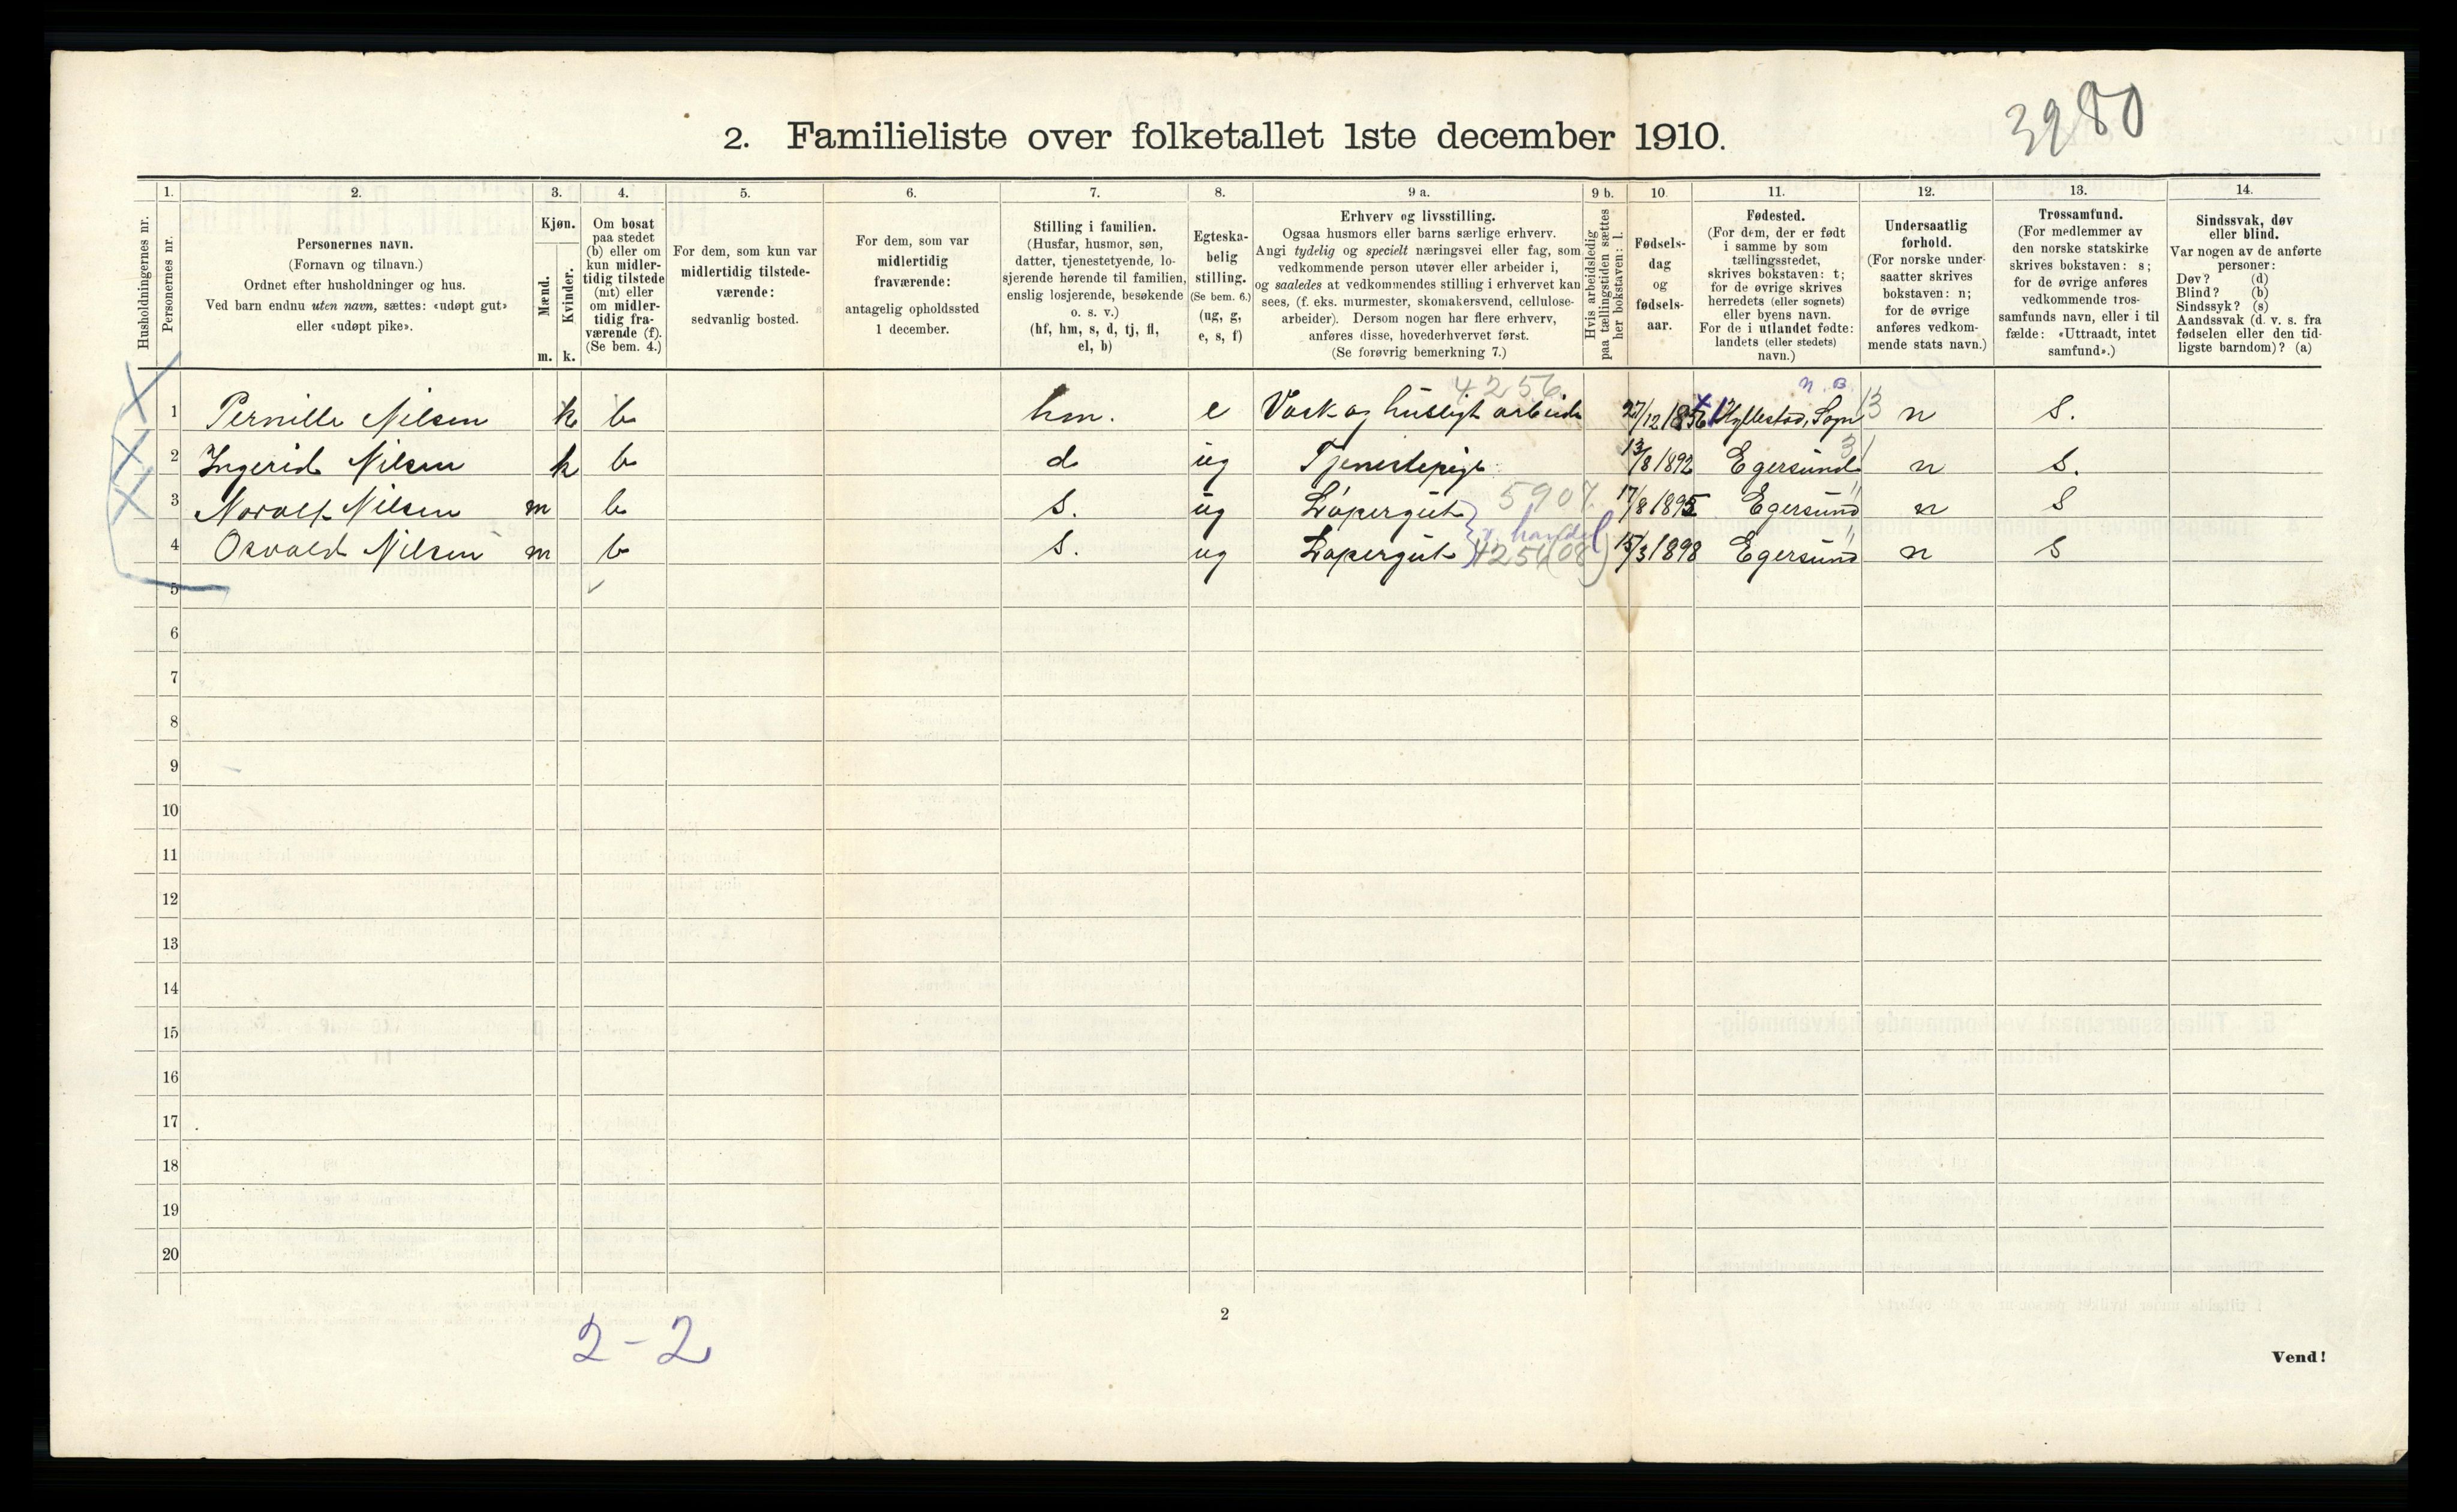 3980
2. Familieliste over folketallet 1ste december 1910.
1. 2. 3. 4. 5. 6. 7. 8. 9 a. 9 b. 10. 11. 12. 13. 14.
Husholdningernes nr.
Personernes nr.
Personernes navn.
(Fornavn og tilnavn.)
Ordnet efter husholdninger og hus.
Ved barn endnu uten navn, sættes: «udøpt gut»
eller «udøpt pike».
Kjøn.
Mænd.
Kvinder.
m. k.
Om bosat
paa stedet
(b) eller om
kun midler-
tidig tilstede
(mt) eller
om midler-
tidig fra-
værende (f).
(Se bem. 4.)
For dem, som kun var
midlertidig tilstede-
værende:
sedvanlig bosted.
For dem, som var
midlertidig
fraværende:
antagelig opholdssted
1 december.
Stilling i familien.
(Husfar, husmor, søn,
datter, tjenestetyende, lo-
sjerende hørende til familien,
enslig losjerende, besøkende
o. s. v.)
(hf, hm, s, d, tj, fl,
el, b)
Egteska-
belig
stilling.
(Se bem. 6.)
(ug, g,
e, s, f)
Erhverv og livsstilling.
Ogsaa husmors eller barns særlige erhverv.
Angi tydelig og specielt næringsvei eller fag, som
vedkommende person utøver eller arbeider i,
og saaledes at vedkommendes stilling i erhvervet kan
sees, (f. eks. murmester, skomakersvend, cellulose-
arbeider). Dersom nogen har flere erhverv,
anføres disse, hovederhvervet først.
(Se forøvrig bemerkning 7.)
Hvis arbeidsledig
paa tællingstiden sættes
her bokstaven: l.
Fødsels-
dag
og
fødsels-
aar.
Fødested.
(For dem, der er født
i samme by som
tællingsstedet,
skrives bokstaven: t;
for de øvrige skrives
herredets (eller sognets)
eller byens navn.
For de i utlandet fødte:
landets (eller stedets)
navn.)
Undersaatlig
forhold.
(For norske under-
saatter skrives
bokstaven: n;
for de øvrige
anføres vedkom-
mende stats navn.)
Trossamfund.
(For medlemmer av
den norske statskirke
skrives bokstaven: s;
for de øvrige anføres
vedkommende tros-
samfunds navn, eller i til-
fælde: «Uttraadt, intet
samfund».)
Sindssvak, døv
eller blind.
Var nogen av de anførte
personer:
Døv? (d)
Blind? (b)
Sindssyk? (s)
Aandssvak (d. v. s. fra
fødselen eller den tid-
ligste barndom)? (a)
4256 n. B.
1 Pernille Nilsen k b hm. e Vask og husligt arbeide 27/12 1856 Hyllestad, Sogn 13 n S.
2 Ingerid Nilsen k b d ug Tjenestepige 13/8 1892 Egersund n S.
3 Norolf Nilsen m b S. ug Løpergut 5907. 17/8 1895 Egersund n S
v. handel
4 Osvald Nilsen m b S. ug Løpergut 4256(08) 15/3 1898 Egersund n S
5
6
7
8
9
10
11
12
13
14
15
16
17
18
19
20
2
2-2
Vend!